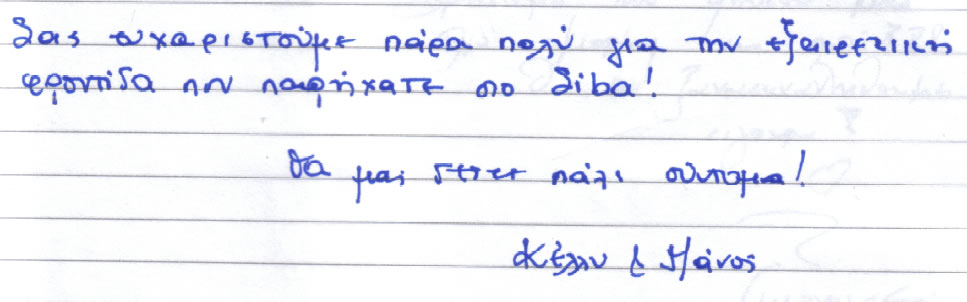 Σας ευχαριστούμε πάρα πολύ για την εξαιρετική
φροντίδα που παρήχατε στο Σίβα!
Θα μας δείτε πάλι σύντομα!
Κέλλυ & Μάνος